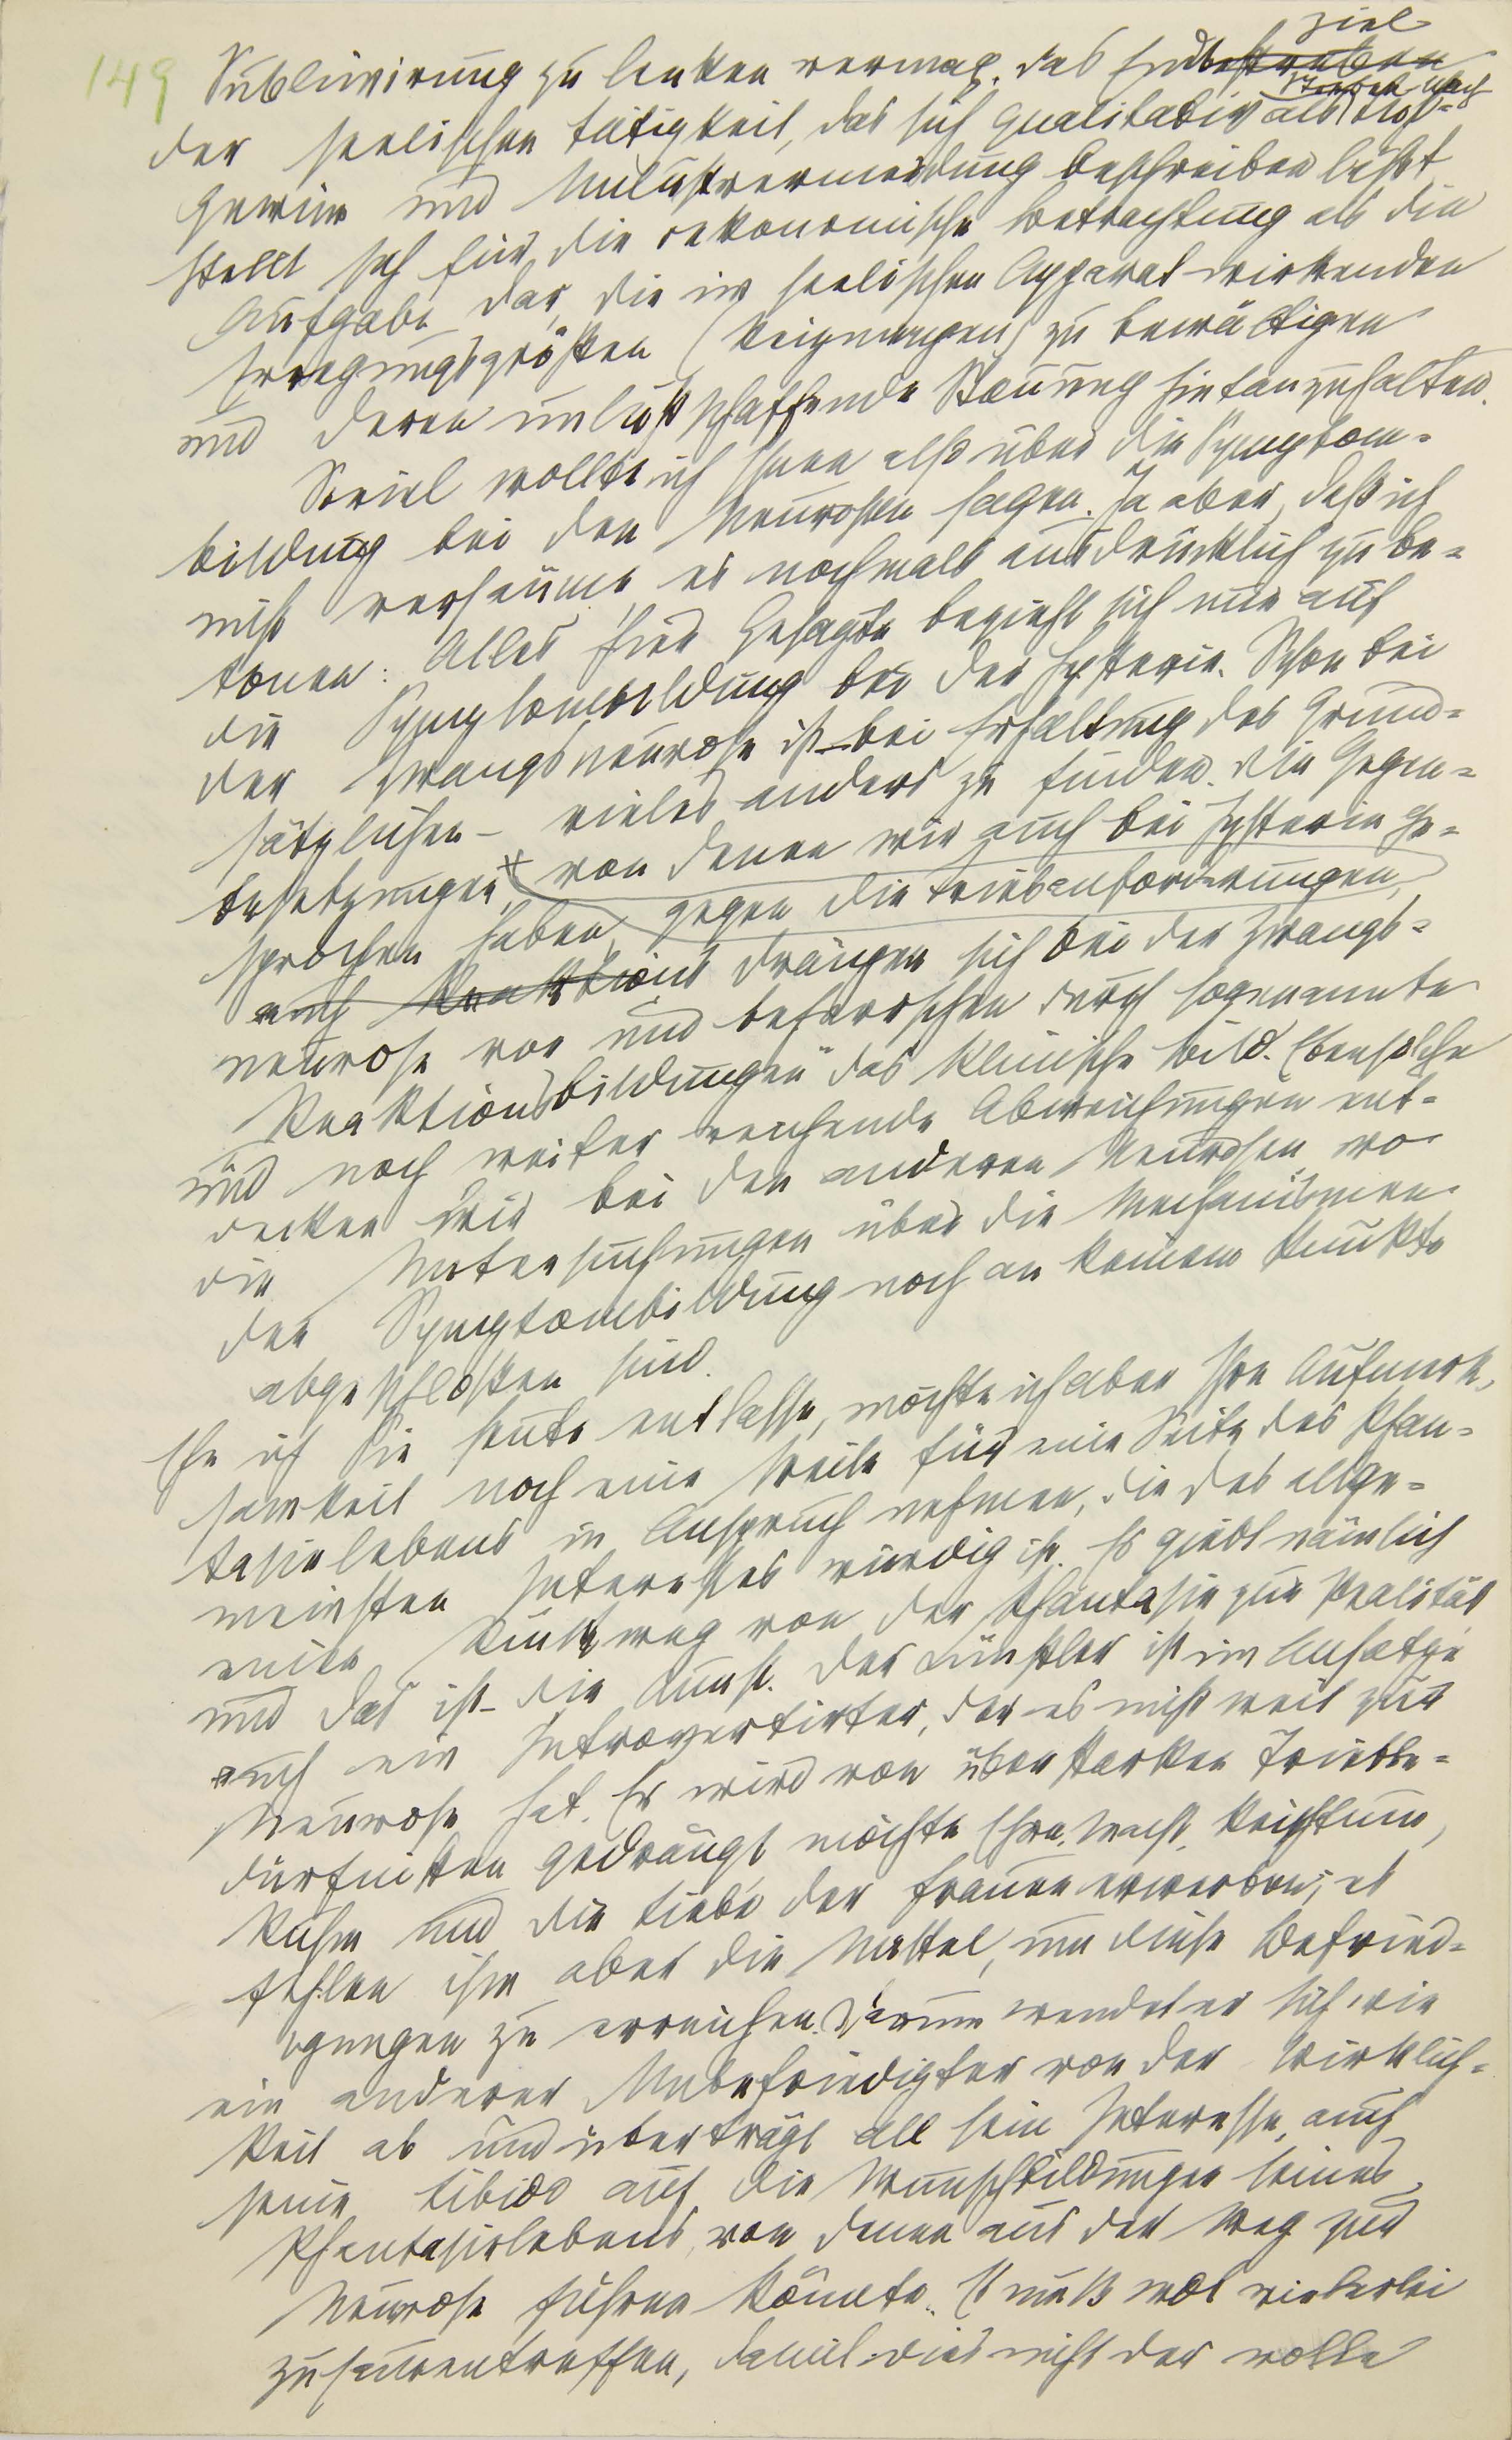 149
Sublimirung zu lenken vermag. Das End~~bestreben~~ziel
der seelischen Tätigkeit, das sich qualitativ als Streben nach Lust-
gewinn und Unlustvermeidung beschreiben läßt,
stellt sich für die oekonomische Betrachtung als die
Aufgabe dar, die im seelischen Apparat wirkenden
Erregungsgrößen (Reizmengen) zu bewältigen
und deren unlustschaffende Stauung hintanzuhalten.
Soviel wollte ich Ihnen also über die Symptom-
bildung bei den Neurosen sagen. Ja aber, daß ich
nicht versäume, es nochmals ausdrücklich zu be-
tonen: Alles hier Gesagte bezieht sich nur auf
die Symptombildung bei der Hysterie. Schon bei
der Zwangsneurose ist – bei Erhaltung des Grund-
sätzlichen – vieles anders zu finden. Die Gegen-
besetzungen, von denen wir auch bei Hysterie ge-
sprochen haben, gegen die Triebanforderungen,
~~auch Reaktions~~ drängen sich bei der Zwangs-
neurose vor und beherrschen durch sogenannte
„Reaktionsbildungen“ das klinische Bild. Ebensolche
und noch weiter reichende Abweichungen ent-
decken wir bei den anderen Neurosen, wo
die Untersuchungen über die Mechanismen
der Symptombildung noch an keinem Punkte
abgeschlossen sind.
Ehe ich Sie heute entlasse, möchte ich aber Ihre Aufmerk-
samkeit noch eine Weile für eine Seite des Phan-
tasielebens in Anspruch nehmen, die des allge-
meinsten Interesses würdig ist. Es giebt nämlich
einen Rückweg von der Phantasie zur Realität
und das ist – die Kunst. Der Künstler ist im Ansatze
auch ein Introvertirter, der es nicht weit zur
Neurose hat. Er wird von überstarken Triebbe-
dürfnissen gedrängt, möchte Ehre, Macht, Reichtum,
Ruhm und die Liebe der Frauen erwerben; es
fehlen ihm aber die Mittel, um diese Befried-
igungen zu erreichen. Darum wendet er sich wie
ein anderer Unbefriedigter von der Wirklich-
keit ab und überträgt all sein Interesse, auch
seine Libido auf die Wunschbildungen seines
Phantasielebens, von denen aus der Weg zur
Neurose führen könnte. Es muß wol vielerlei
zusammentreffen, damit dies nicht der volle